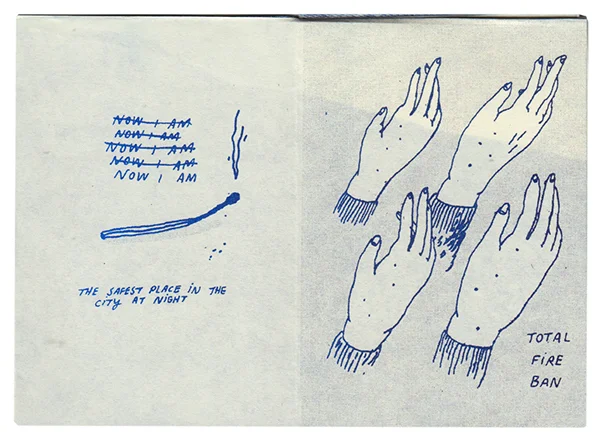 NOW I AM
NOW I AM
NOW I AM
NOW I AM
NOW I AM
THE SAFEST PLACE IN THE
CITY AT NIGHT
TOTAL
FiRE
BAN